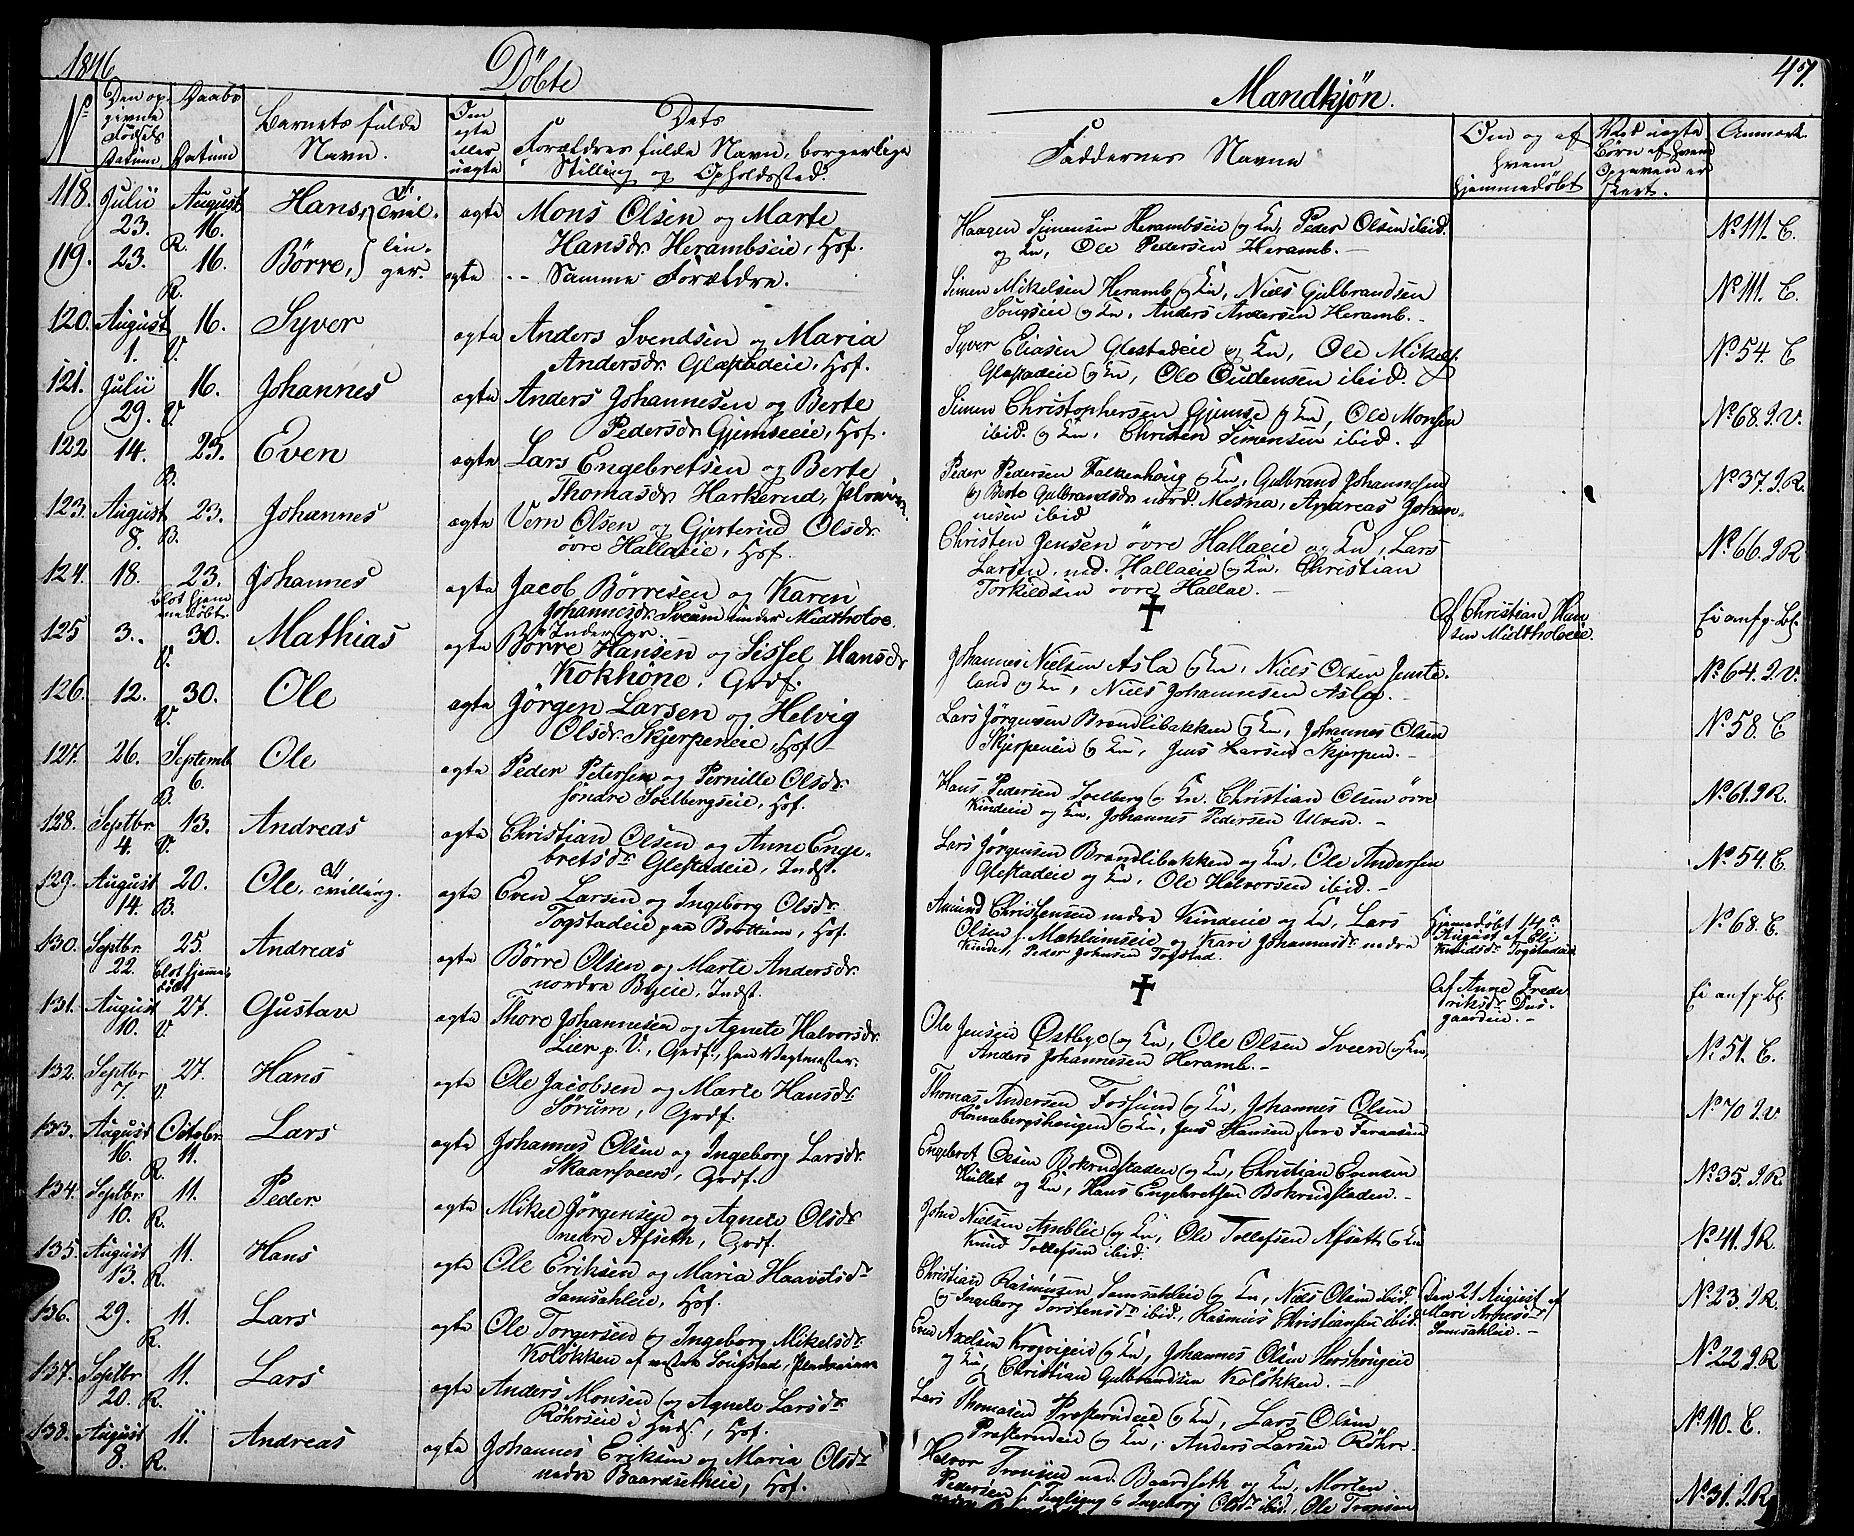 1846
Döbte
Mandkjön.
47.
No
Den op-
givne
Födsels
Datum
Daabs
Datum
Barnets fulde
Navn.
Om
ægte
eller
uægte
Dets
Forældres fulde Navn, borgerlige
Stilling og Opholdssted.
Faddernes Navne
Om og af
hvem
hjemmedöbt
Ved uægte
Börn af hvem
Opgaven er
skeet.
Anmærk.
118. Julii August Hans, Tvil- ægte Mons Olsen og Marte
23. 16. Hansdr. Herambseie, Hof.
R.
Haagen Simensen Herambseie og Kn, Peder Olsen ibid.
og Kn, Ole Pedersen Heramb. No 111. E.
119. 23. 16. Börre, lin-
ger. ægte -- Samme Forældre.
R.
Simen Mikelsen Heramb og Kn, Niels Gulbrandsen
Sougseie og Kn, Anders Andersen Heramb. No 111. E.
120. August 16. Syver ægte Anders Svendsen og Maria
1. V. Andersdr. Glæstadeie, Hof.
Syver Eliasen Glestadeie og Kn, Ole Mikels.
Glestadeie og Kn, Ole Oudensen ibid. No 54. E
121. Julii 16. Johannes ægte Anders Johannesen og Berte
29. V. Pedersdr. Gjemseeie, Hof.
Simen Christophersen Gjemse og Kn, Ole Monsen
ibid. og Kn, Christen Simensen ibid. No 68. J.V.
122 14. 23. Even ægte Lars Engebretsen og Berte
B. Thomasdr. Harkerud,
Peder Pedersen Falkenhoug og Kn, Gulbrand Johannesen
og Berte Gulbrandsdr. nord. Mesna, Andreas Johan-
nesen ibid No 37. J.R.
123. August 23. Johannes ægte Vern Olsen og Gjerterud Olsdr.
8. B. övre Hallaeie, Hof.
Christen Jensen övre Hallaeie og Kn, Lars
Larsen, ned. Hallaeie og Kn, Christian
Torkildsen övre Hallae. No 66. J.R
124. 18. 23. Johannes ægte Jacob Börresen og Karen
Blot hjem-
medöbt Johannesdr. Sveum under Midtholoe.
Inderster.
Af Christian Han-
sen Midtholoeie. Ei anf. p. Bl.
125 3. 30. Mathias ægte Börre Hansen og Sissel Hansdr.
V. Kokhöne, Grdf.
Johannes Nielsen Asla og Kn, Niels Olsen Jemte-
land og Kn, Niels Johannesen Asla. No 64. J.V.
126. 12. 30. Ole ægte Jörgen Larsen og Helvig
V. Olsdr. Skjerpeneie, Hof
Lars Jörgensen Brandlibakken og Kn, Johannes Olsen
Skjerpeneie og Kn, Jens Larsen Skjerpen. No 58. E
127. 26. Septemb. Ole ægte Peder Petersen og Pernille Olsdr.
6.
B. söndre Soelbergseie, Hof.
Hans Pedersen Soelberg og Kn. Christian Olsen övre
Kindeeie og Kn, Johannes Pedersen Ulven. No 61. J.R.
128. Septbr. 13. Andreas ægte Christian Olsen og Anne Enge-
4. V. bretsdr. Glestadeie, Indst.
Lars Jörgensen Brandlibakken og Kn, Ole Andersen
Glestadeie og Kn, Ole Halvorsen ibid. No 54. E.
129. August 20. Ole, Tvilling. ægte Even Larsen og Ingeborg Olsdr.
14. B. Togstadeie paa Bröttum, Hof.
Amund Christensen nedre Kindeeie og Kn, Lars
Olsen Mæhlumseie og Kari Johannesdr. nedre
Kinde, Peder Johnsen Togstad.
Hjemmedöbt 14de
August af Eli
Knudsdr. Togstadeie No 68. E.
130. Septbr. 25. Andreas ægte Börre Olsen og Marte Andersdr.
22. Blot hjemme-
döbt nordre Byeie, Indst.
Af Anne Frede-
riksdr. Dus-
gaardeie. Ei anf. p. Bl.
131. August 27. Gustav ægte Thore Johannesen og Agnete Halvorsdr.
10. V. Lier p. V., Grdf., han Vagtmester.
Ole Jensen Östbye og Kn, Ole Olsen Sveen og Kn,
Anders Johannesen Heramb. No 51. E.
132. Septbr 27. Hans ægte Ole Jacobsen og Marie Hansdr.
7. V. Sörum, Grdf.
Thomas Andersen Fossund og Kn, Johannes Olsen
Rönnebergshougen og Kn, Jens Hansen store Faraasen No 70. J.V
133. August October Lars ægte Johannes Olsen og Ingeborg Larsdr.
16. 11.
R. Skaarsveen, Grdf.
Engebret Olsen Bokrudstaden og Kn, Christian Evensen
Kullet og Kn, Hans Engebretsen Bokrudstaden. No 35. J.R
134. Septbr. 11. Peder ægte Mikel Jörgensen og Agnete Olsdr.
10. R. nedre Afseth, Grdf.
John Nielsen Amblie og Kn, Ole Tollefsen Afseth og Kn
Knud Tollefsen ibid. No 41. J.R.
135. August 11. Hans ægte Ole Eriksen og Maria Haavelsdr.
13. R. Samsahleie, Hof.
Christian Rasmusen Samsahleie og Kn, Niels Olsen ibid.
og Ingeborg Torstensdr. ibid., Rasmus Christiansen ibid.
Den 21 August af
Mari Arnesdr.
Samsahleie. No 23. J.R.
136. 29. 11. Lars ægte Ole Torgersen og Ingeborg Mikelsdr.
R. Kolökken af vestre Sougstad,
Even Axelsen Krogvigeie og Kn, Johannes Olsen Hershougeie
og Kn, Christian Gulbrandsen Kolökken. No 22. J.R
137. Septbr. 11. Lars ægte Anders Monsen og Agnete Larsdr.
20. R. Röhrseie i Hof.
Lars Thomasen Præsterudeie og Kn, Lars Olsen
Præsterudeie og Kn, Anders Larsen Röhr. No 110. E.
138. August 11. Andreas ægte Johannes Eriksen og Maria Olsdr.
8. R. nedre Baardsetheie, Hof.
Halvor Tronsen ned. Baardseth og Kn, Morten
Pedersen Ingeborg Olsdr. ibid., Ole Tronsen
No 31. J.R.